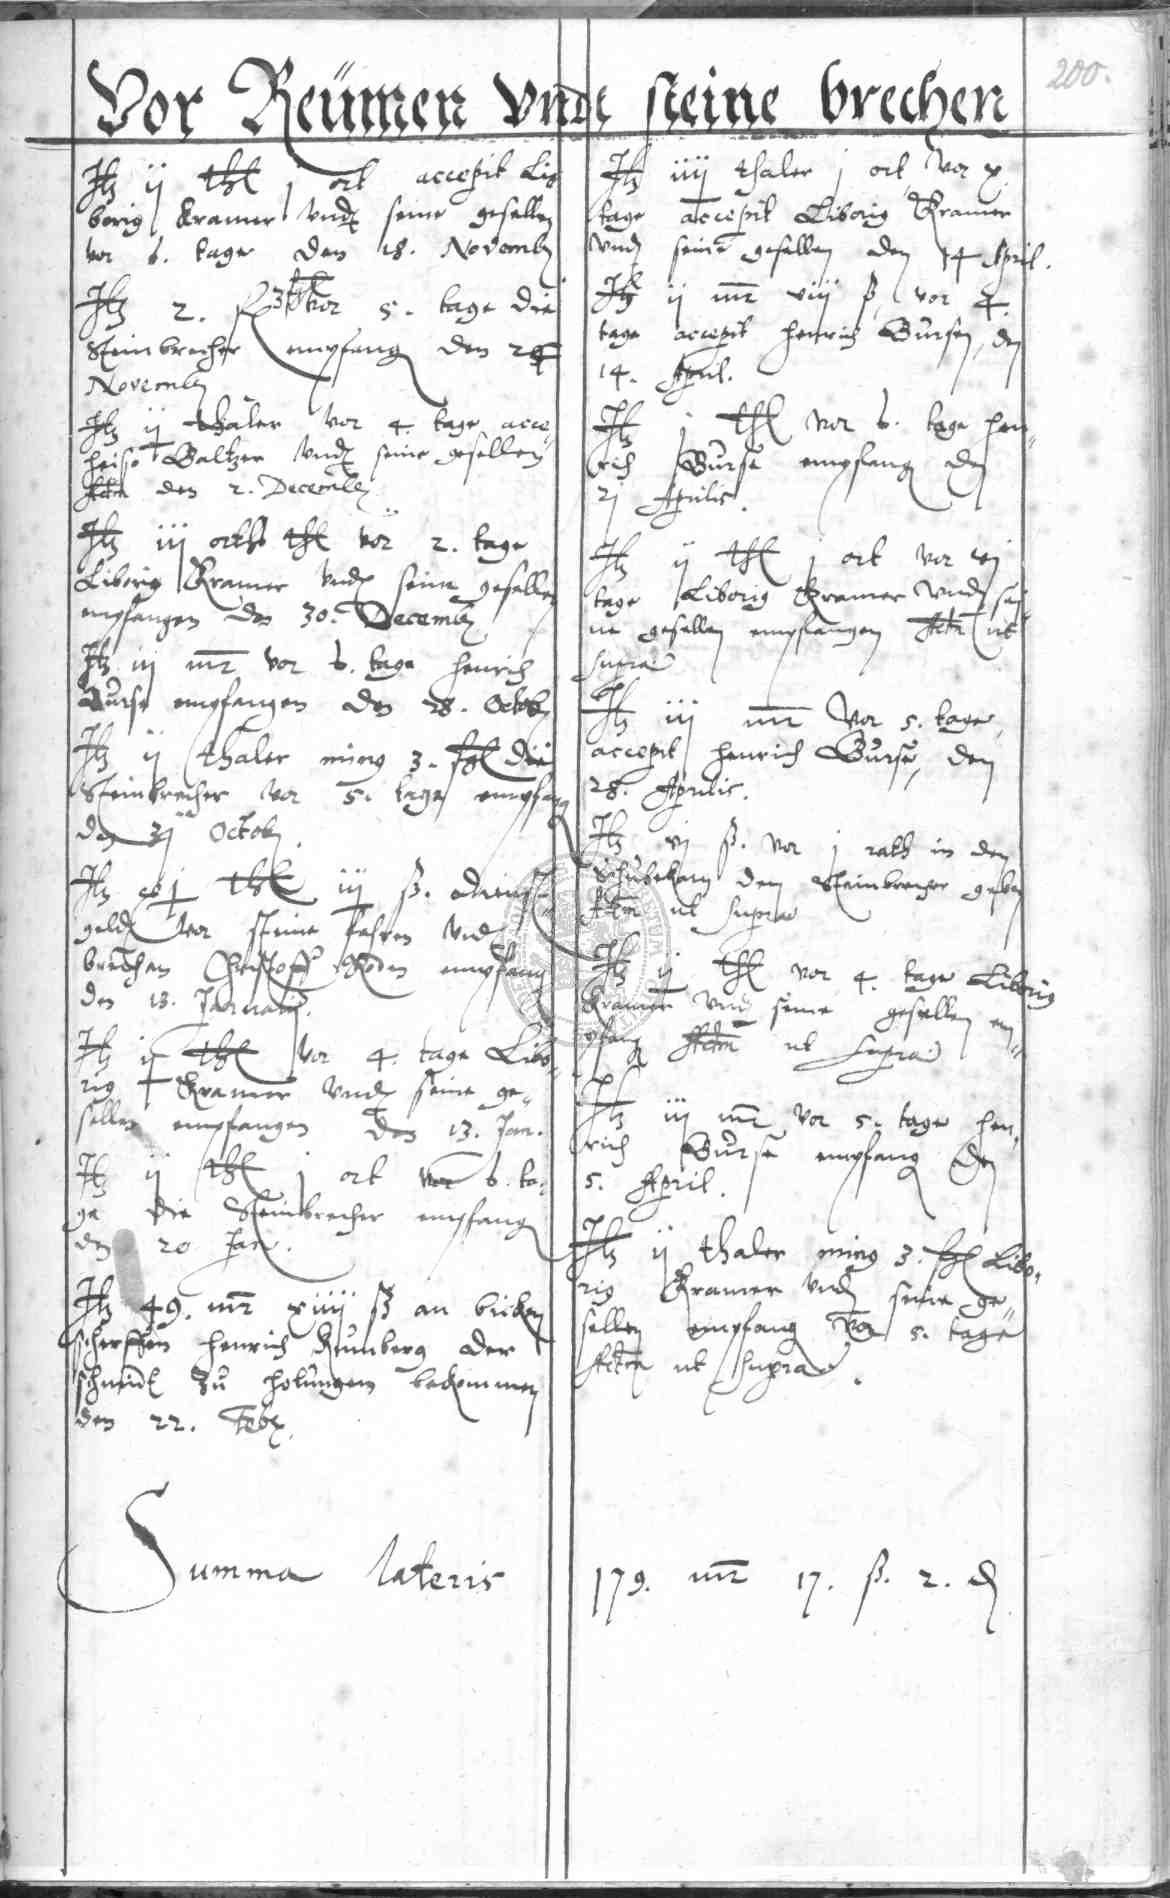 200.
Vor Reümen vnd steine brechen
Itz ij thl j ort accepit Li¬
borig Kramer vnd seine gesellen
vor 6. tage den 18. Novemb
Itz 2. vor 5. tage die
Steinbrecher empfang den
Novemb
Itz ij thaler vor 4. tage acce¬
Baltzer vnd seine gesellen
den 2. Decemb
Itz iij orths thl vor 2. tage
Liborig Kramer vnd seine gesellen
empfangen den 30. Decemb
Itz iij mr vor 6. tage henrich
Burse empfangen den 28. Octob
Itz ij thaler ming 3. die
Steinbrecher vor 5. tage empfang
den 31 Octob.
Itz thl iij ß.
geld vor steine vnd
brechen Christoff Roden empfang
den 13. Januarij.
Itz ij thl vor 4. tage Libo¬
rig Kramer vnd seine ge¬
sellen empfangen den 13. Jan.
Itz ij thl j ort vor 6. ta¬
ge die Steinbrecher empfang
den 20 Jan.
Itz 49. mr xiiij ß an bicken
scherffen henrich der
schmidt zu holungen bekommen
den 22. Feb.
Itz iiij thaler j ort vor x.
tage accepit Liborig Kramer
vnd seine gesellen den 14 April.
Itz ij mr viij ß vor 4.
tage accepit henrich Bursen, den
14. April.
Itz j thl vor 6. tage hen¬
rich Burse empfang den
21 Aprilis.
Itz ij thl j ort vor vj
tage Liborig Kramer vnd sei¬
ne gesellen empfangen Actm ut
supra
Itz iij mr vor 5. tage,
accepit henrich Burse, den
28. Aprilis.
Itz vj ß. vor j in den
den Steinbrecher geben
Actm ut supra
Itz ij thl vor 4. tage Liborig
Kramer vnd seine gesellen em¬
pfang Actm ut supra
Itz iij mr vor 5. tage hen¬
rich Burse empfang den
5. April.
Itz ij thaler ming 3. Libo¬
rig Kramer vnd seine ge¬
sellen empfang vor 5. tage
Actm ut supra.
Summa lateris 179. mr 17. ß. 2. d